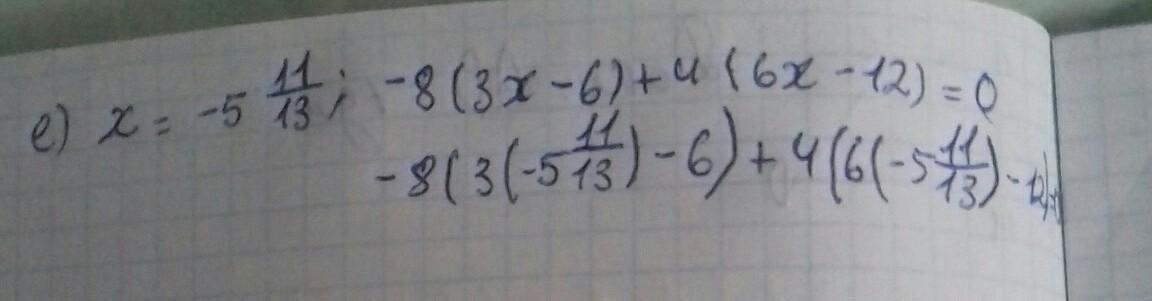 е) x = -5 11/13; -8(3x-6)+4(6x-12)=0
-8(3(-5 11/13)-6)+4(6(-5 11/13)-12)=